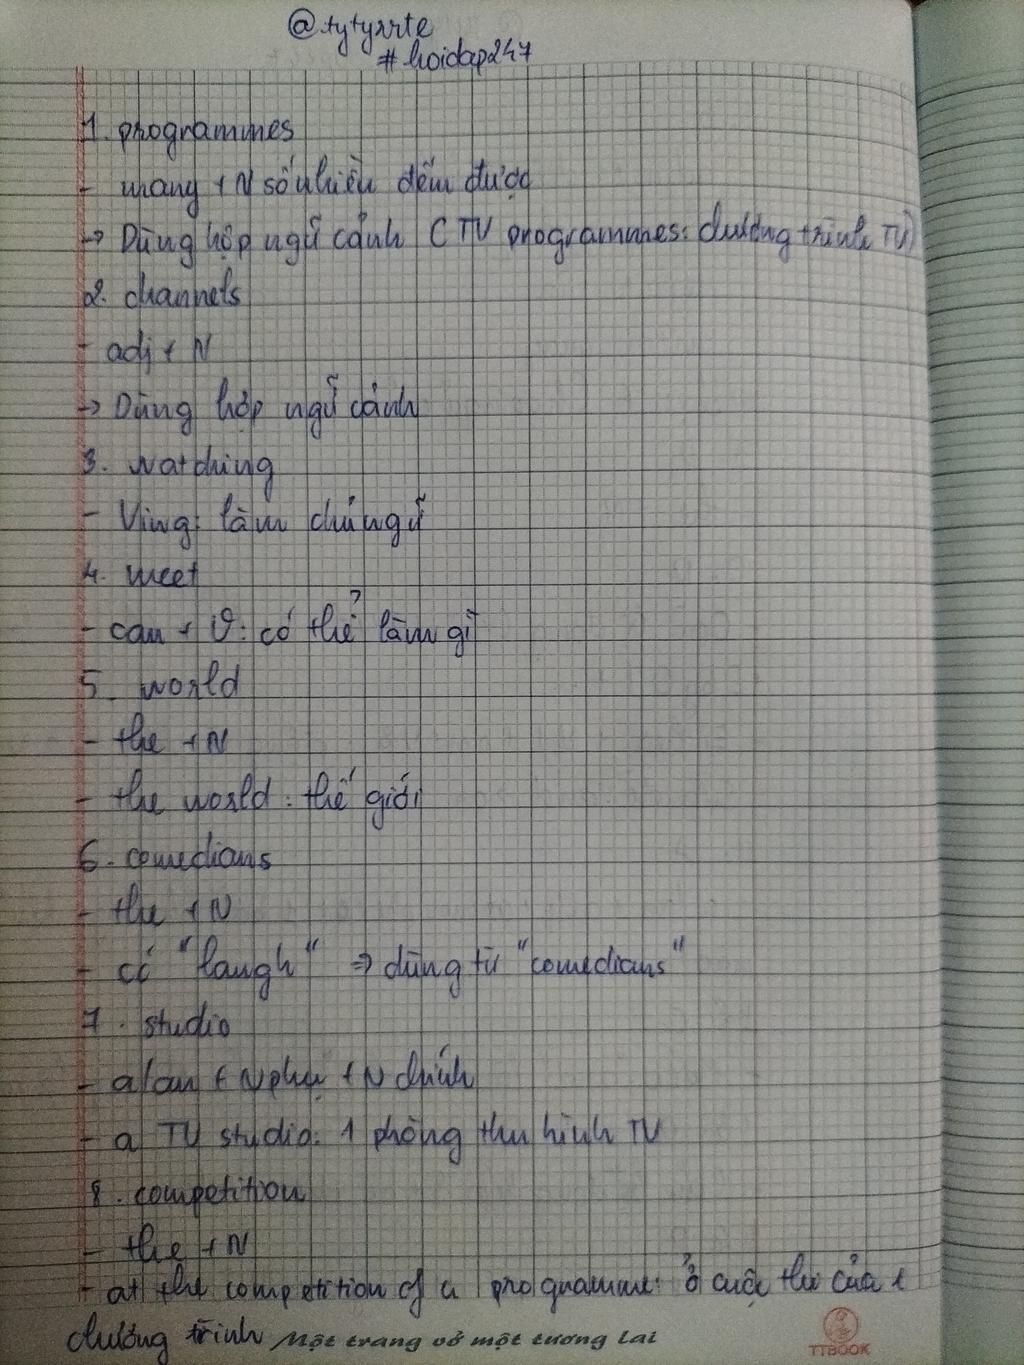 @tytyrrte
#hoidap247
1. programmes
- many + N số nhiều đếm được
-> Dùng hợp ngữ cảnh (TV programmes: chương trình TV)
2. channels
- adj + N
-> Dùng hợp ngữ cảnh
3. watching
- Ving: làm chủ ngữ
4. meet
- can + V: có thể làm gì
5. world
- the + N
- the world: thế giới
6. comedians
- the + N
- có "laugh" => dùng từ "comedians"
7. studio
- a/an + N phụ + N chính
- a TV studio: 1 phòng thu hình TV
8. competition
- the + N
- at the competition of a programme: ở cuộc thi của 1
chương trình Một trang vở một tương lai
TTBOOK